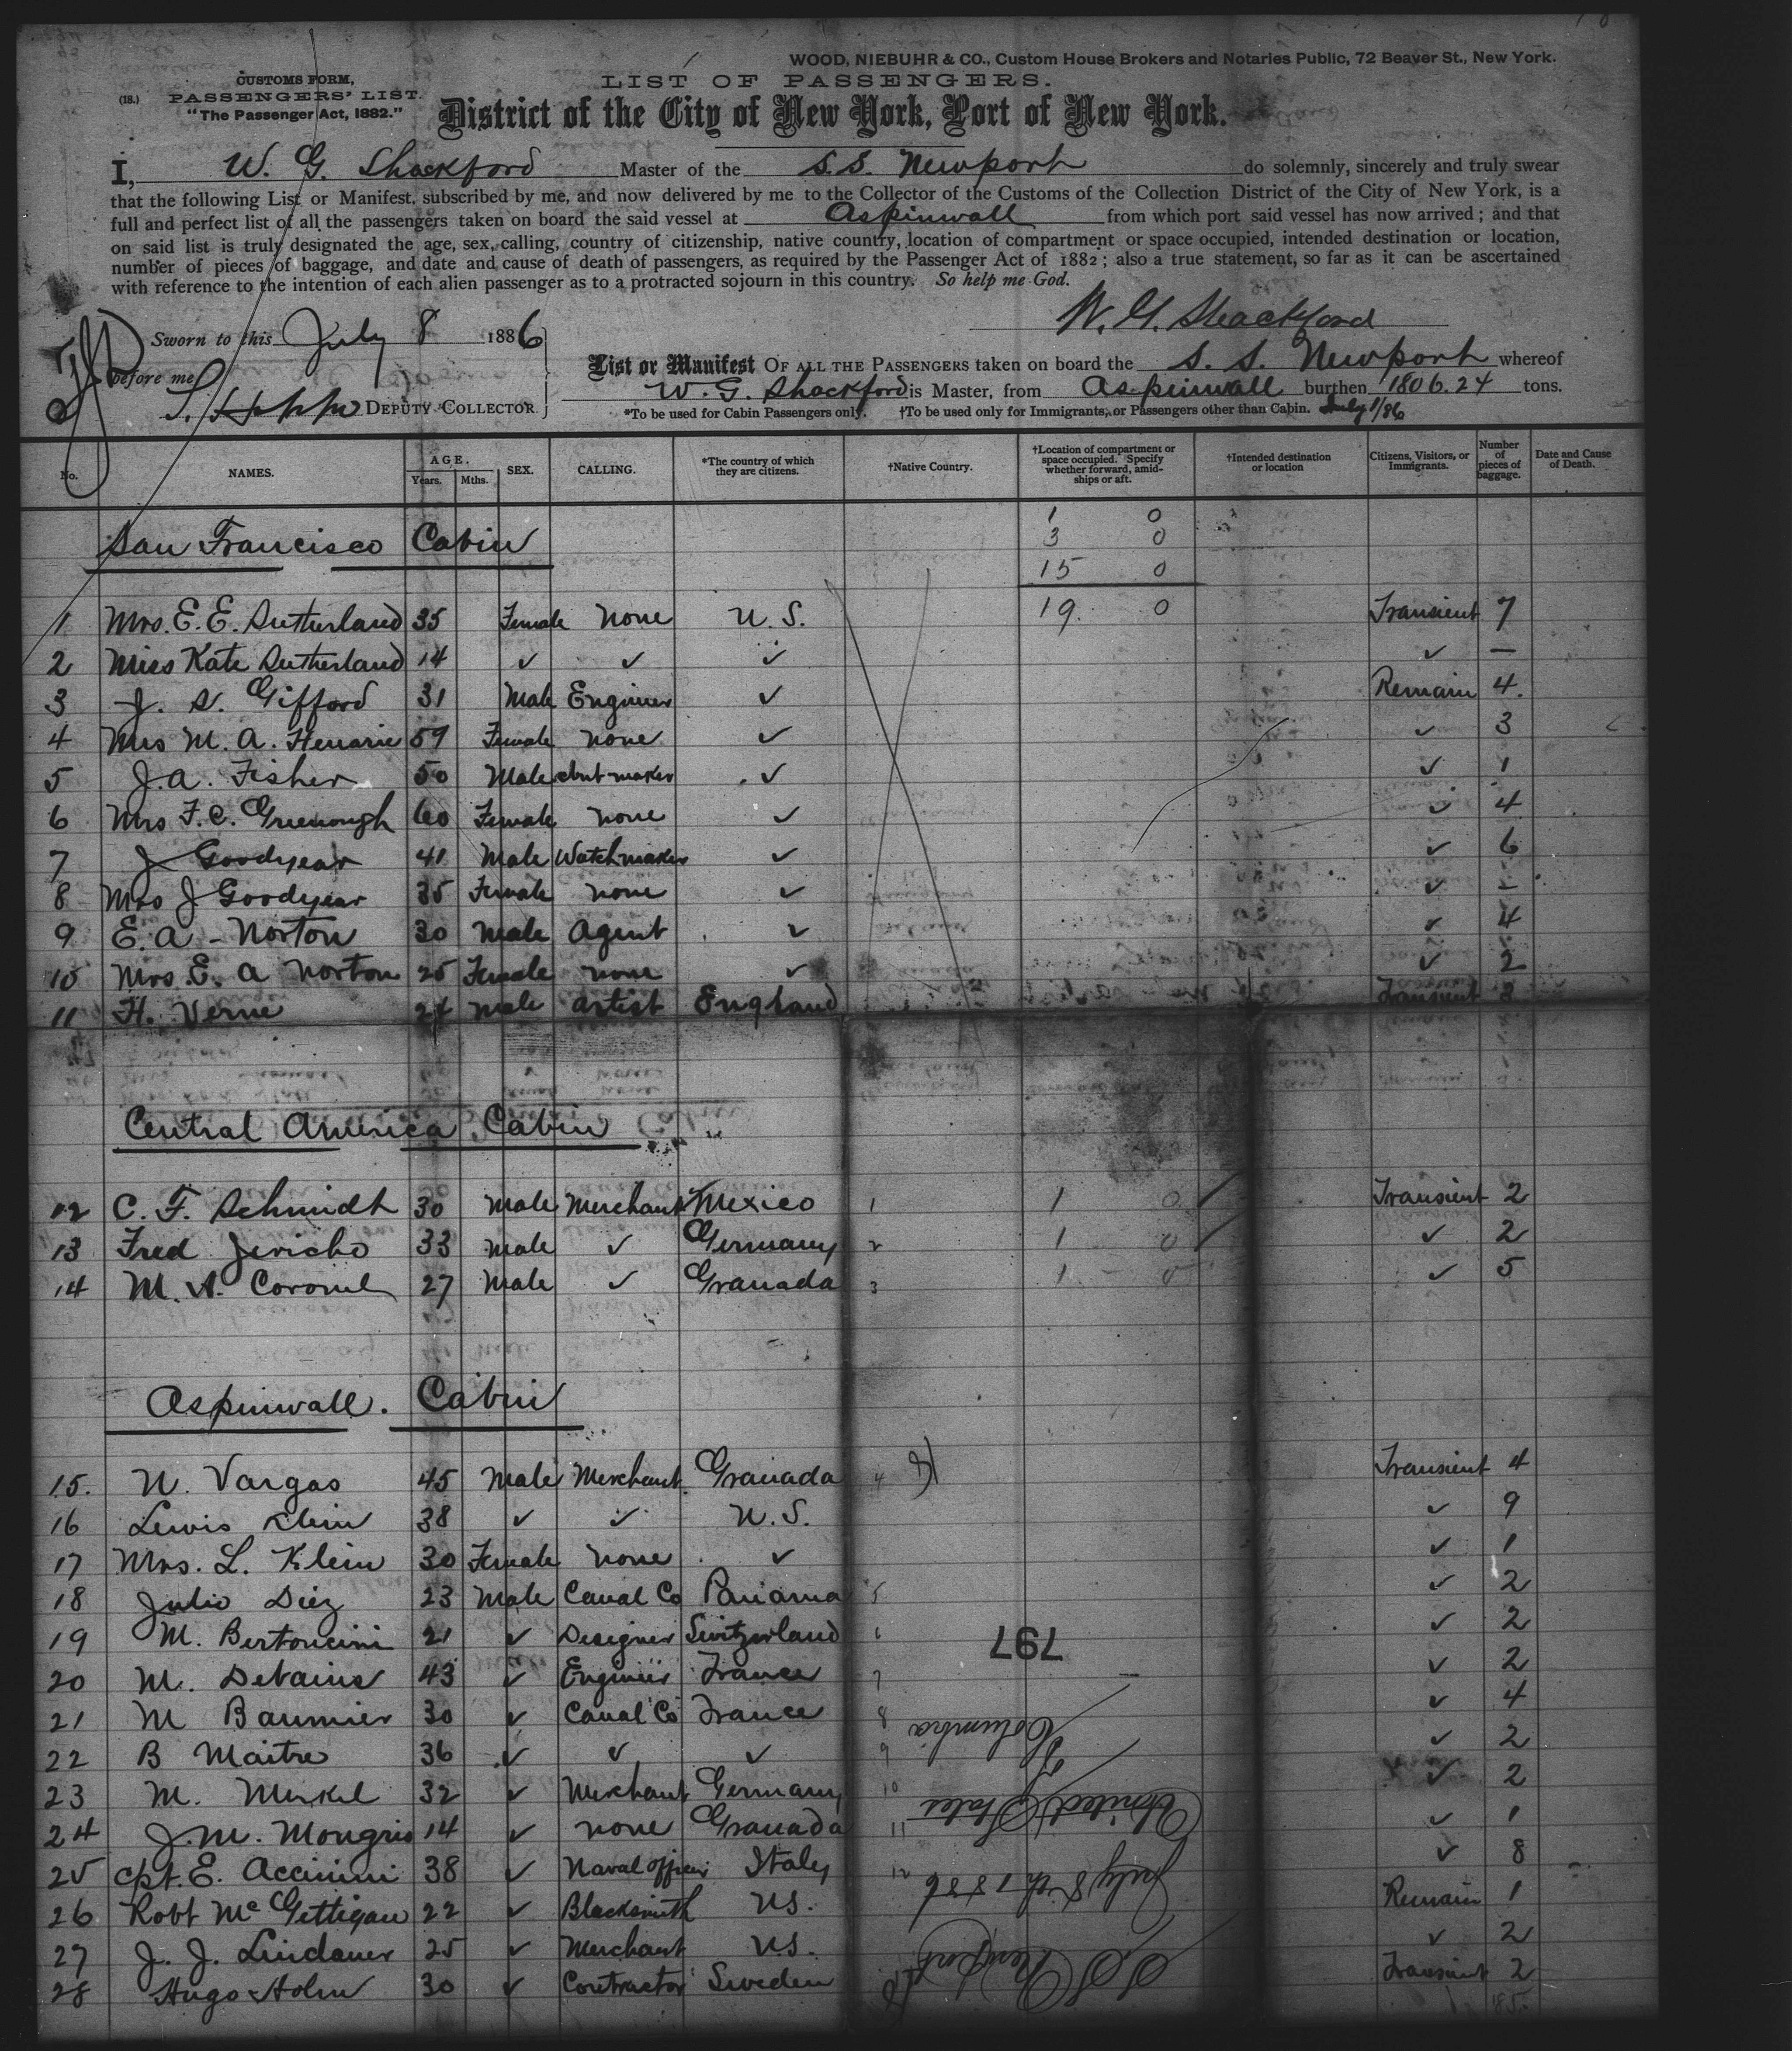 WOOD, NIEBUHR & CO., Custom House Brokers and Notaries Public, 72 Beaver St., New York.
CUSTOMS FORM,
(18.) PASSENGERS' LIST.
"The Passenger Act, 1882."
LIST OF PASSENGERS.
District of the City of New York, Port of New York.
I, W. G. Shackford Master of the S.S. Newport do solemnly, sincerely and truly swear
that the following List or Manifest, subscribed by me, and now delivered by me to the Collector of the Customs of the Collection District of the City of New York, is a
full and perfect list of all the passengers taken on board the said vessel at Aspinwall from which port said vessel has now arrived; and that
on said list is truly designated the age, sex, calling, country of citizenship, native country, location of compartment or space occupied, intended destination or location,
number of pieces of baggage, and date and cause of death of passengers, as required by the Passenger Act of 1882; also a true statement, so far as it can be ascertained
with reference to the intention of each alien passenger as to a protracted sojourn in this country. So help me God.
W. G. Shackford
Sworn to this July 8 1886
before me
DEPUTY COLLECTOR
List or Manifest OF ALL THE PASSENGERS taken on board the S. S. Newport whereof
W. G. Shackford is Master, from Aspinwall burthen 1806.24 tons.
*To be used for Cabin Passengers only. †To be used only for Immigrants, or Passengers other than Cabin. July 1/86
No. NAMES. AGE. Years. Mths. SEX. CALLING. *The country of which they are citizens. †Native Country. †Location of compartment or space occupied. Specify whether forward, amidships or aft. †Intended destination or location Citizens, Visitors, or Immigrants. Number of pieces of baggage. Date and Cause of Death.
1 0
San Francisco Cabin 3 0
15 0
1 Mrs. E. E. Sutherland 35 Female None U.S. 19. 0 Transient 7
2 Miss Kate Sutherland 14 ✓ ✓ ✓ ✓ —
3 J. S. Gifford 31 Male Engineer ✓ Remain 4.
4 Mrs M. A. Henarie 59 Female None ✓ ✓ 3
5 J. A. Fisher 50 Male ✓ ✓ 1
6 Mrs F. C. Greenough 60 Female None ✓ ✓ 4
7 J Goodyear 41 Male Watchmaker ✓ ✓ 6
8 Mrs J Goodyear 35 Female None ✓ ✓ –
9 E. A - Norton 30 Male Agent ✓ ✓ 4
10 Mrs. E. A Norton 25 Female None ✓ ✓ 2
11 H. Verne 24 Male Artist England Transient 3
Central America Cabin
12 C. F. Schmidt 30 Male Merchant Mexico 1 1 0 Transient 2
13 Fred Jericho 33 Male ✓ Germany 2 1 0 ✓ 2
14 M. A. Coronel 27 Male ✓ Granada 3 1 0 ✓ 5
Aspinwall. Cabin
15. N. Vargas 45 Male Merchant Granada 4 Transient 4
16 Lewis Klein 38 ✓ ✓ U.S. ✓ 9
17 Mrs. L. Klein 30 Female None ✓ ✓ 1
18 Julio Diez 23 Male Canal Co Panama 5 ✓ 2
19 M. Bertoncini 21 ✓ Designer Switzerland 6 ✓ 2
797
20 M. Devains 43 ✓ Engineer France 7 ✓ 2
21 M Baumier 30 ✓ Canal Co France 8 ✓ 4
22 B Maitre 36 ✓ ✓ ✓ 9 ✓ 2
23 M. Merkel 32 ✓ Merchant Germany 10 ✓ 2
24 J. M. Mongrio 14 ✓ None Granada 11 ✓ 1
25 Cpt. E. Accinini 38 ✓ Naval officer Italy 12 ✓ 8
26 Robt McGettigan 22 ✓ Blacksmith U.S. Remain 1
27 J. J. Lindauer 25 ✓ Merchant U.S. ✓ 2
28 Hugo Holm 30 ✓ Contractor Sweden Transient 2
85.
S S Newport
July 8th 1886
United States
Columbia